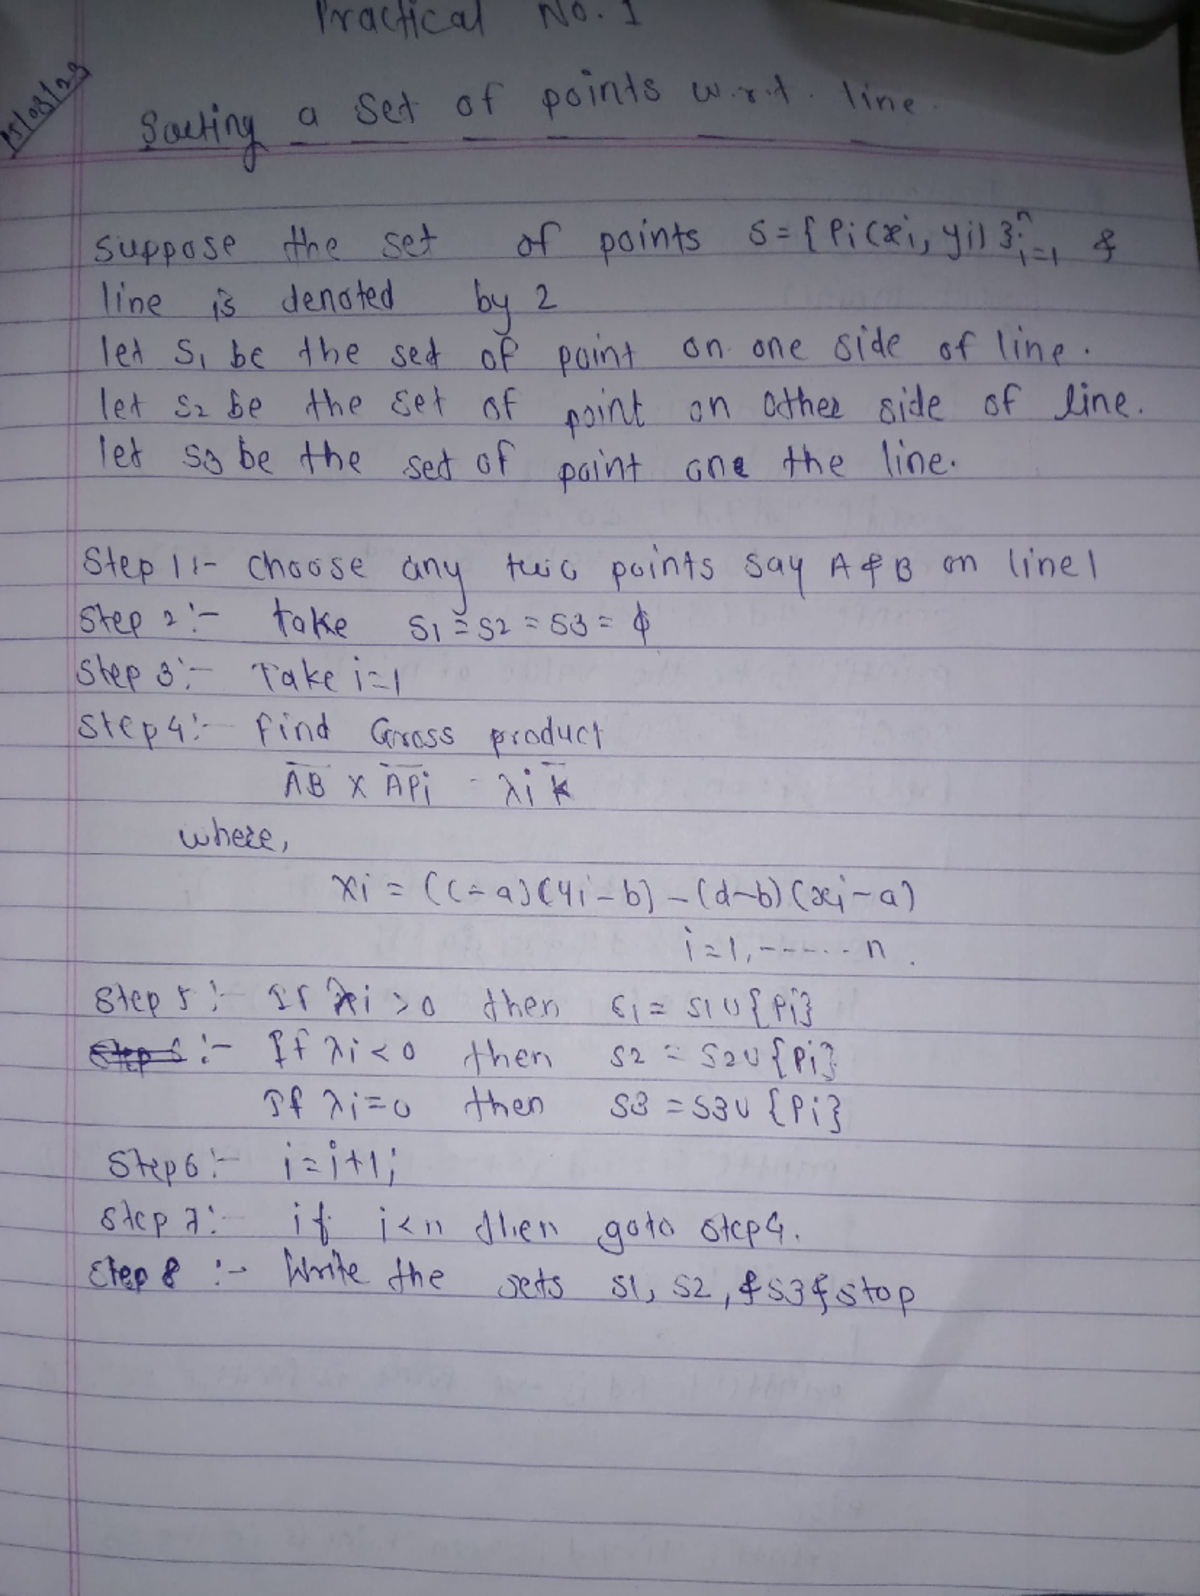 Practical No. 1
15/03/23
Sorting a set of points w.r.t. line.
suppose the set of points S = { Pi (xi, yi) }ⁿi=1 &
line is denoted by 2
let S1 be the set of point on one side of line.
let S2 be the set of point on other side of line.
let S3 be the set of point one the line.
Step 1:- choose any two points say A & B on line l
Step 2:- take S1 = S2 = S3 = ϕ
Step 3:- Take i=1
Step 4:- find Gross product
A̅B̅ x A̅P̅i = λi k̅
where,
xi = (c-a)(yi-b) - (d-b)(xi-a)
i=1, ------ n.
Step 5:- If λi > 0 then S1 = S1 ∪ {Pi}
:- If λi < 0 then S2 = S2 ∪ {Pi}
If λi = 0 then S3 = S3 ∪ {Pi}
Step 6:- i=i+1;
Step 7:- if i<n then goto step 4.
Step 8 :- Write the sets S1, S2, & S3 & stop